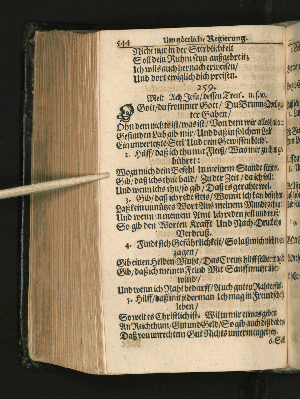 544 Umb göttliche Regierung.
Nicht nur in der Sterbligkeit
Soll dein Ruhm seyn außgebreit;
Ich wils auch hernach erweisen/
Und dort ewiglich dich preisen.
259.
Mel: Ach Jesu/ dessen Treu. u. s. w.
O Gott/ du frommer Gott/ Du Brunnquell
ter Gaben/
Ohn den nichts ist/ was ist/ Von dem wir alles
Gesunden Leib gib mir/ Und daß in solchem Leib
Ein unverletzte Seel Und rein Gewissen bleib.
2. Hilff/ daß ich thu mit Fleiß/ Was mir zu thun ge-
bühret:
Wozu mich dein Befehl In meinem Stande führet.
Gib/ daß ichs thue bald/ Zu der Zeit/ da ich soll:
Und wenn ichs thu/ so gib/ Daß es gerathe wol.
3. Gib/ daß ich rede stets/ Womit ich kan bestehen
Laß kein unnützes Wort Aus meinem Munde gehen
Und wenn in meinem Amt Ich reden soll und muß/
So gib den Worten Krafft Und Nachdruck ohn
Verdruß.
4. Findt sich Gefährligkeit/ So laß mich nicht ver-
zagen/
Gib einen Helden-Muht/ Das Creutz hilff selber
Gib/ daß ich meinen Feind Mit Sanfftmuht über-
winde/
Und wenn ich Raht bedarff/ Auch guten Raht
5. Hilff/ daß mit jederman Ich mag in Freundschafft
leben/
So weit es Christlich ist. Wiltu mir etwas geben
An Reichthum/ Gut und Geld/ So gib auch diß dabey/
Daß von unrechtem Gut Nichts untermenget sey.